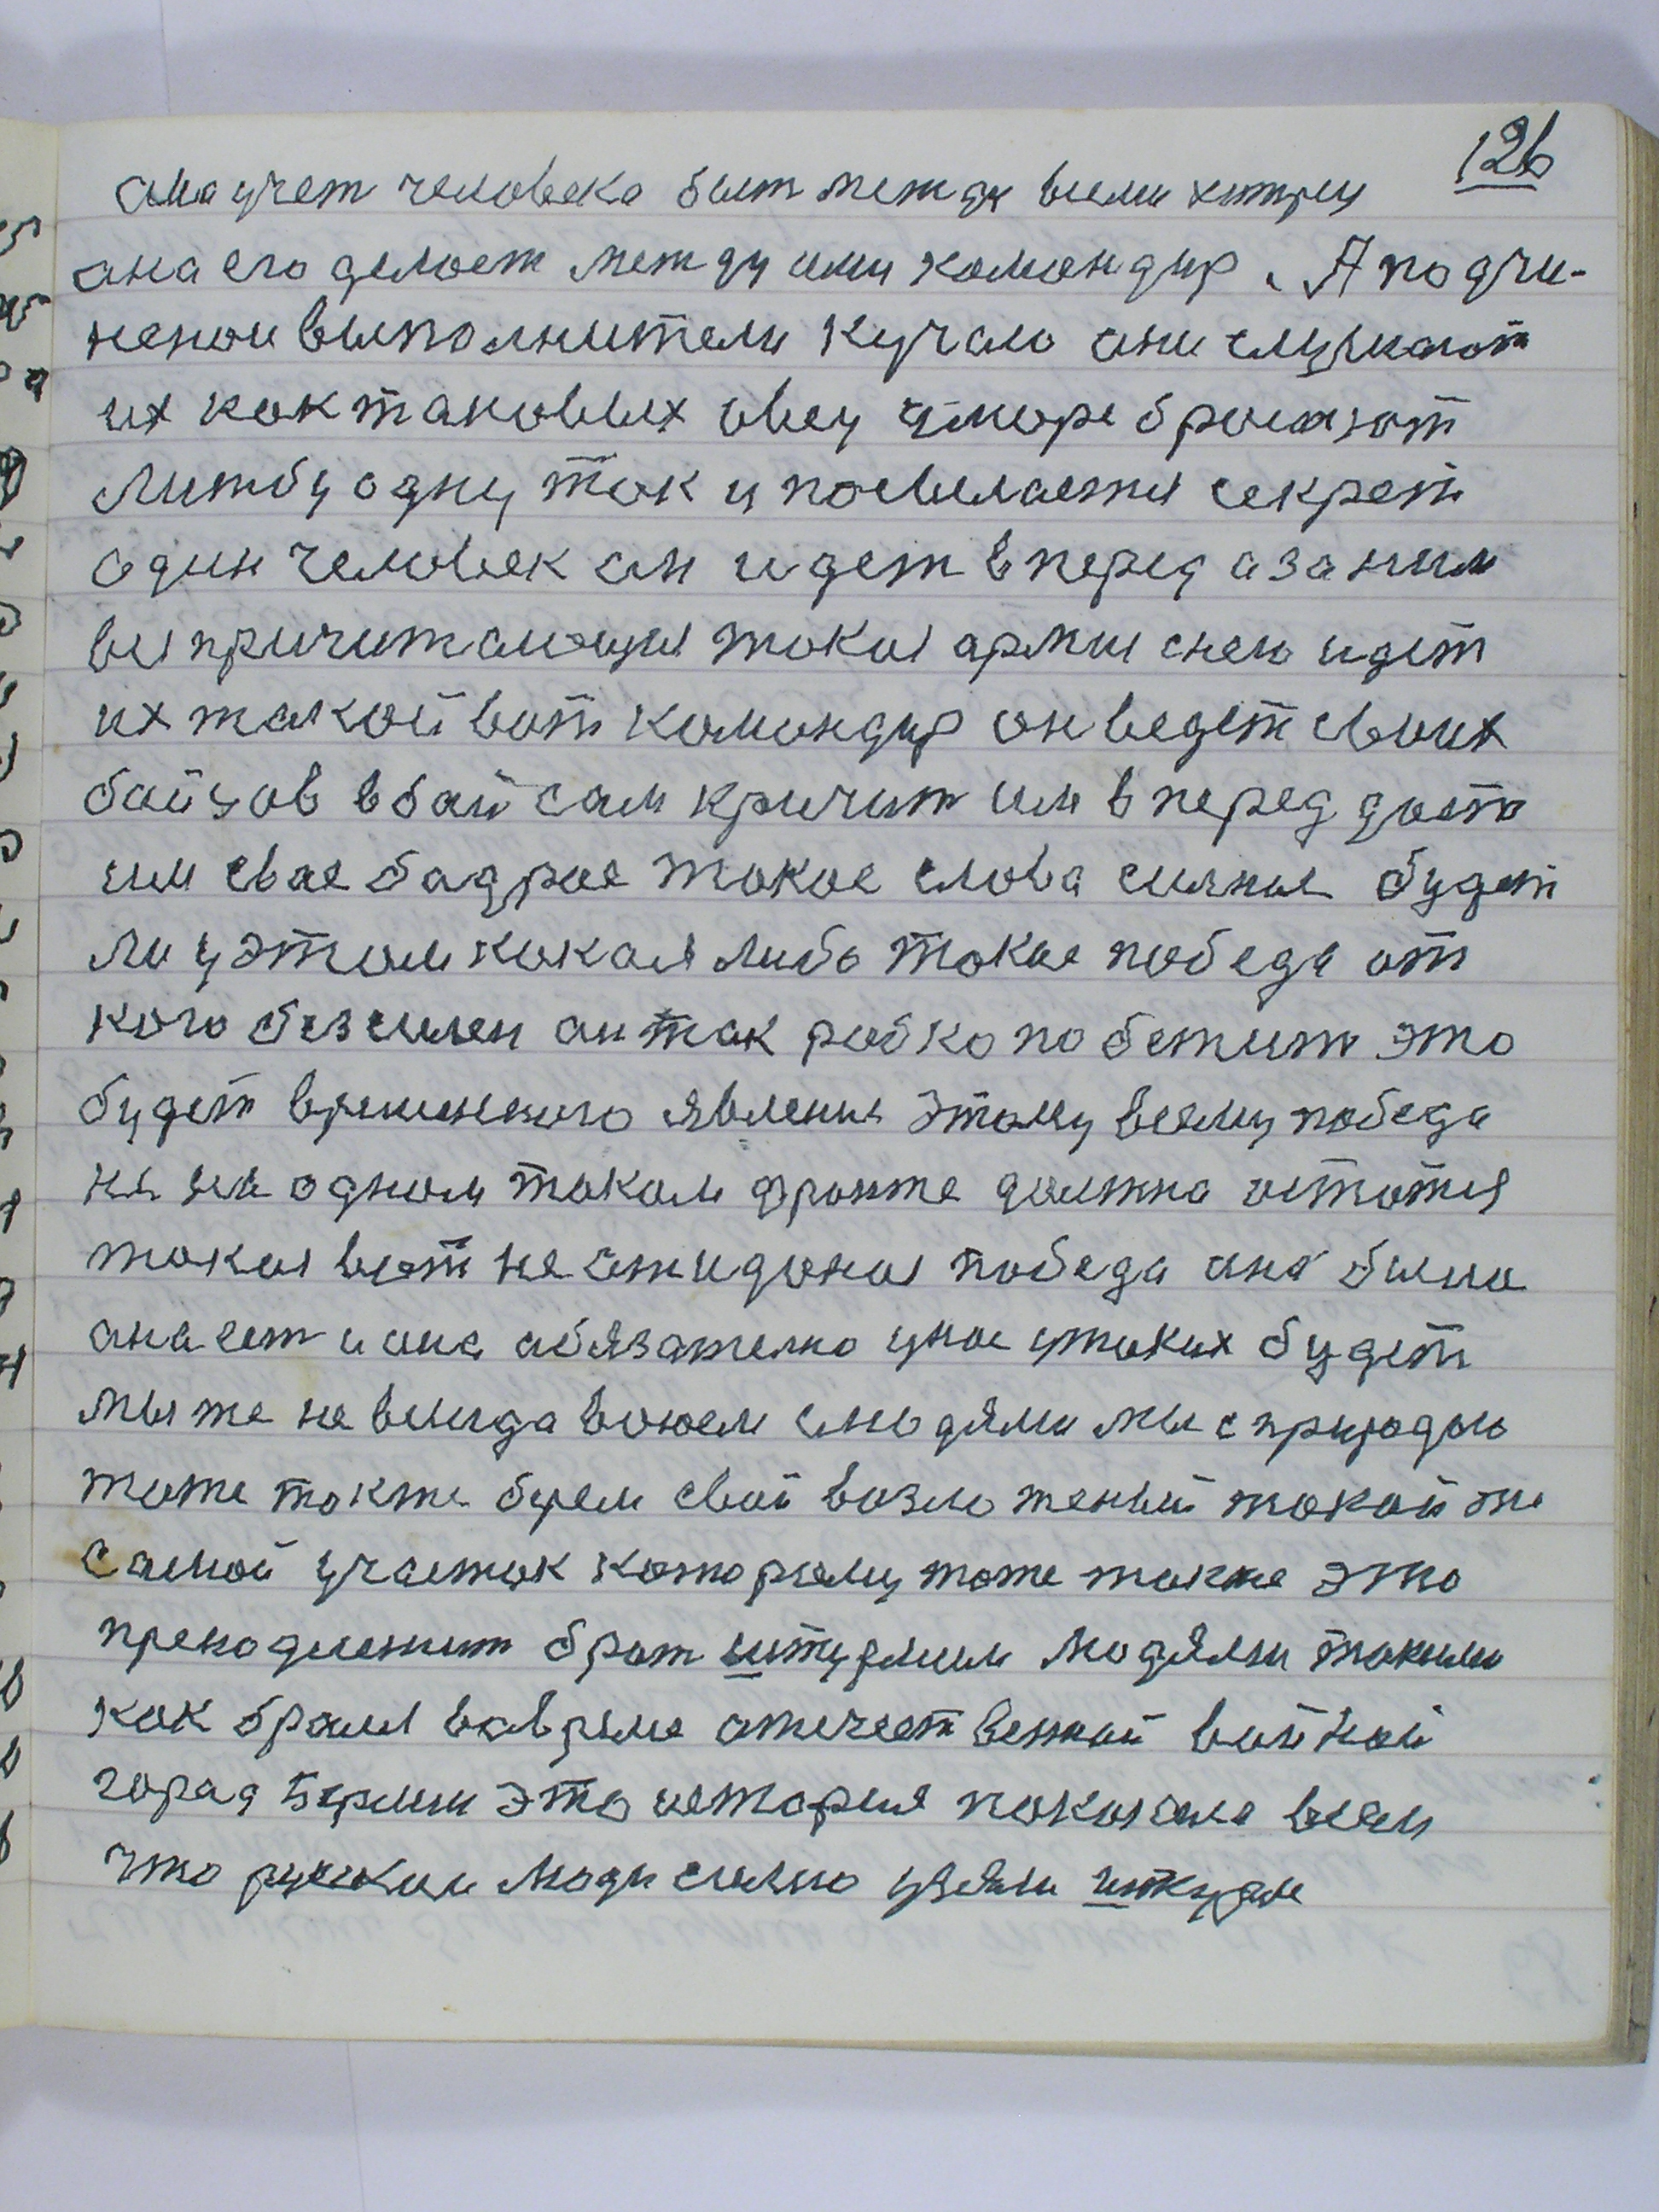 126
ана учет человека быт межди всеми хитрец
ана его делоет межди ими командир. А подчи-
неной выполнители кучаю ани слушают
их как таковых овец у море бросают
лижбу одну так и посылается секрет
один человек ан идет вперед а за ним
вся причитающыя такая армия снею идет
их такой вот командир он ведет своих
байцов в бай сам кричит им вперед дает
им свае бадрое такое слова силние будет
ли у этом какая либо такае победа от
кого безсилен ан так робко побежит это
будет временного явления этому всему победа
ни на одном таком фронте должна остатся
такая вот не ожиданая победа ана была
ана ест и ана абязателно унас утаких будет
мы же не всигда воюем слюдями мы с природою
тоже также берем свой возложеный такой же
самой участок которому тоже также это
преподнежит брат штурмим людями такими
как брали вовремя отечественной войной
горад Берлин это история показала всем
что рускии люди силно узяли